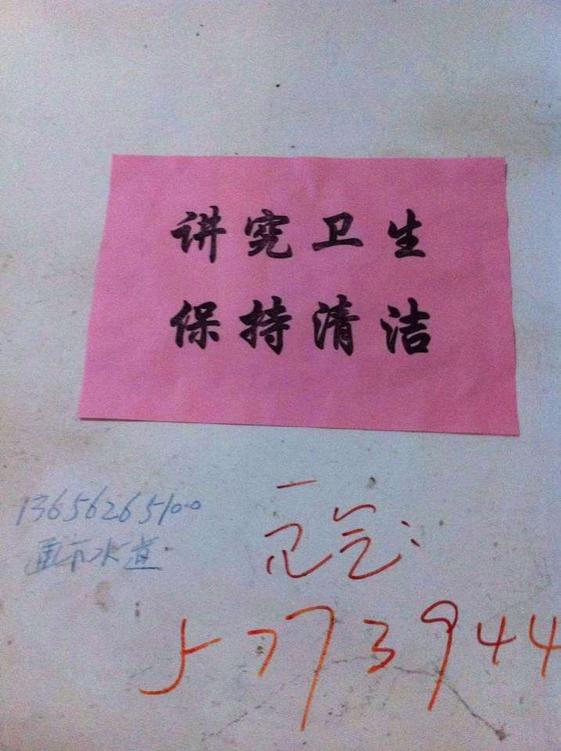 讲究卫生
保持清洁
13656265100
水道
5773944